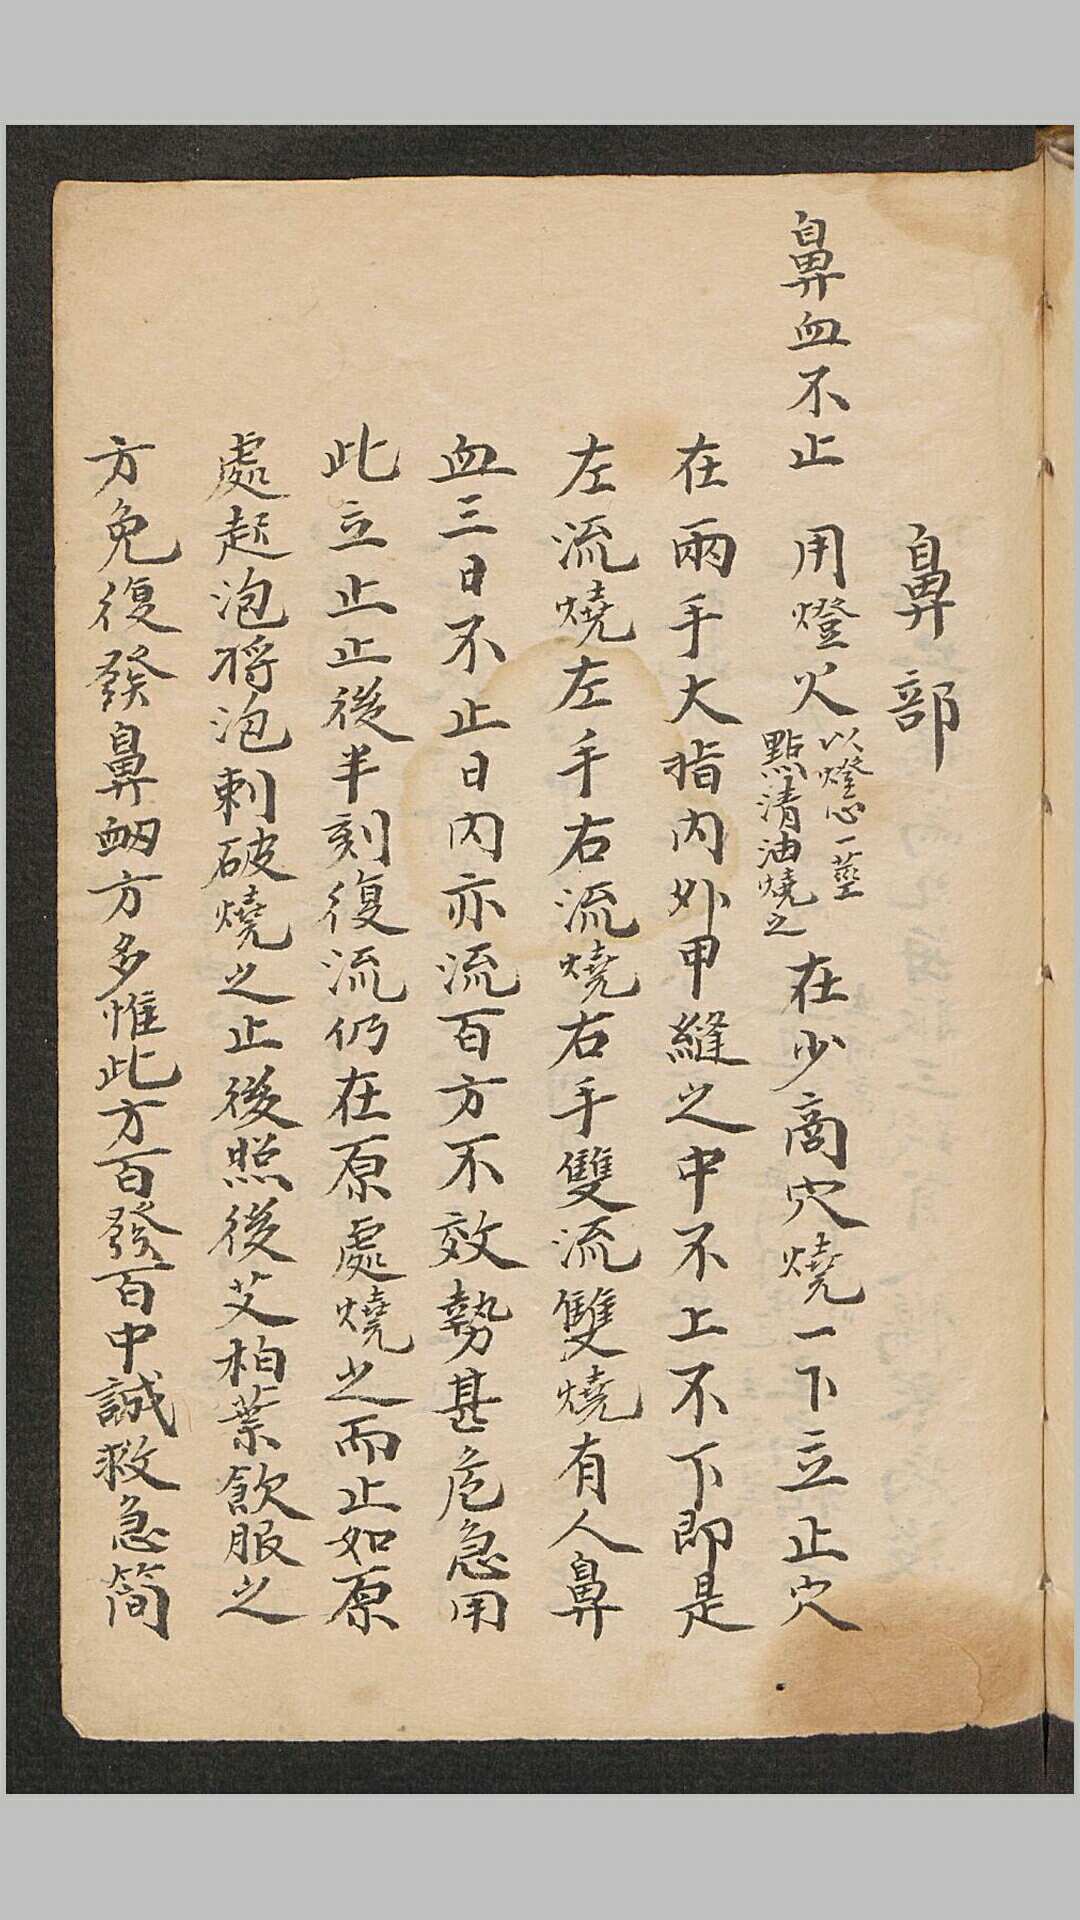 鼻部
鼻血不止　用燈火以燈心一莖點清油燒之在少商穴燒一下立止穴
在兩手大指內外甲縫之中不上不下即是
左流燒左手右流燒右手雙流雙燒有人鼻
血三日不止日內亦流百方不效勢甚危急用
此立止止後半刻復流仍在原處燒之而止如原
處起泡將泡刺破燒之止後照後艾柏葉飲服之
方免復發鼻衂方多惟此方百發百中誠救急簡